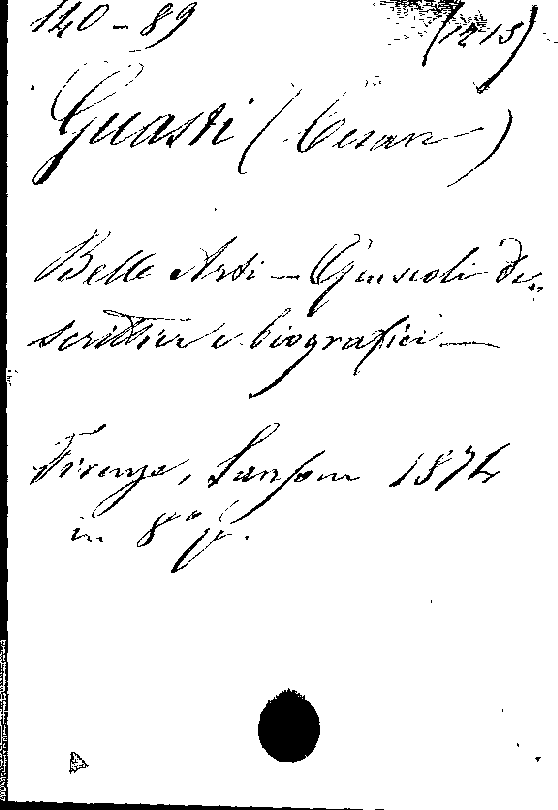 140-89 (1215)
Guasti (Cesare)
Belle Arti — Opuscoli de-
scrittivi e biografici —
Firenze, Sansoni 1874
in 8°